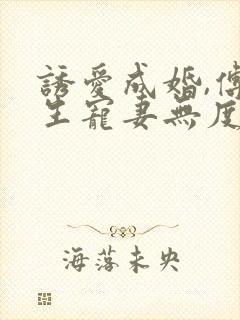 誘愛成婚,傅
生寵妻無度
海落未央